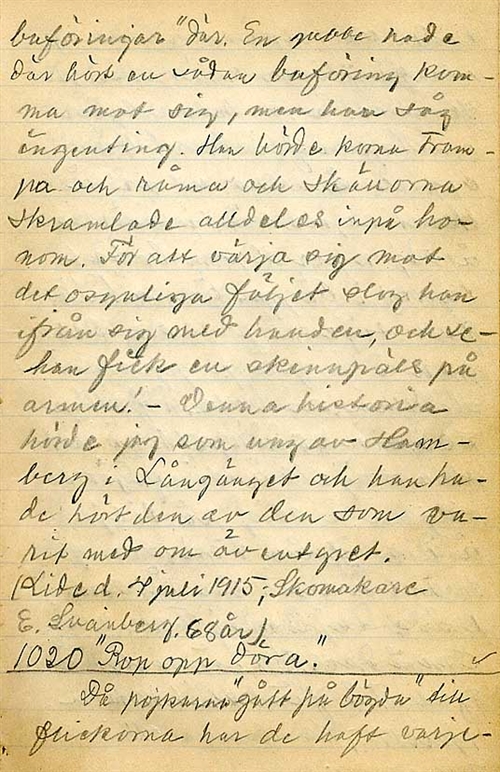 buföringar" där. En gubbe hade
där hört en sådan buföring kom-
ma mot sig, men han såg
ingenting. Han hörde korna tram-
pa och råma och skällorna
skramlade alldeles inpå ho-
nom. För att värja sig mot
det osynliga följet slog han
ifrån sig med handen, och se-
han fick en skinnpäls på
armen! – Denna historia
hörde jag som ung av Ham-
berg i Långänget och han ha-
de hört den av den som va-
rit med om äventyret.
(Lide d. 4 juli 1915; Skomakare
E. Svanberg. 68 år)
1020 "Rop opp döra."
Då pojkarna "gått på bögda" till
flickorna har de haft varje-